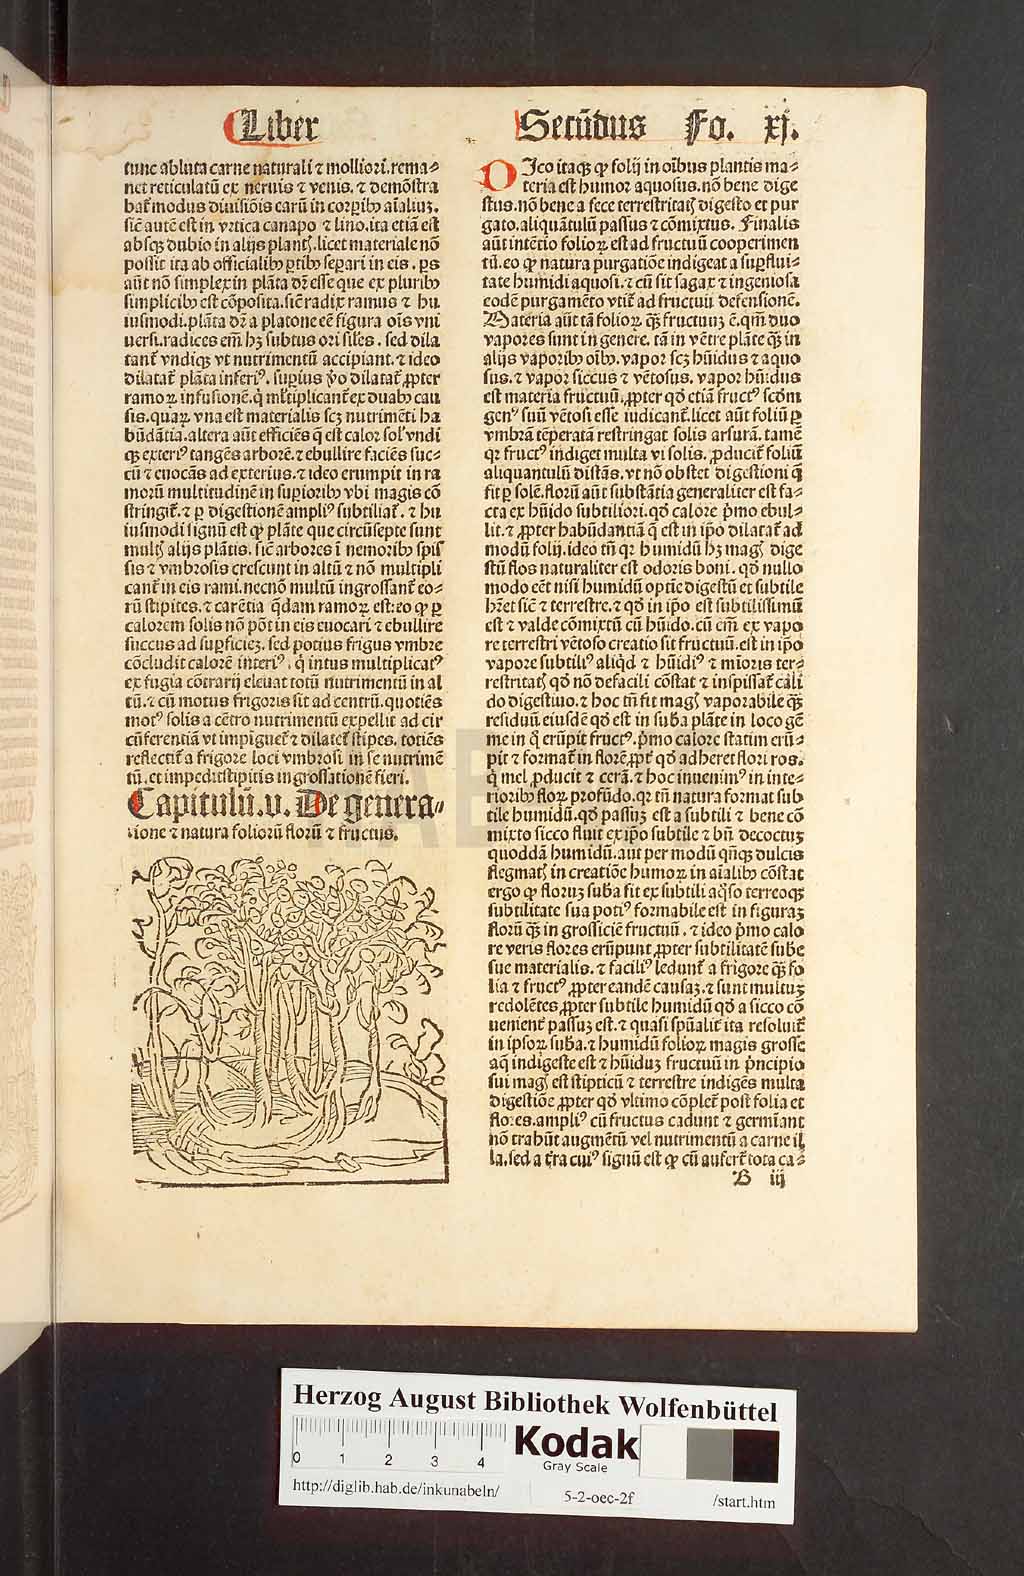 Liber Secūdus Fo. xj.
tunc abluta carne naturali ⁊ molliori.rema⸗
net reticulatū ex neruis ⁊ venis. ⁊ demōstra
bat᷑ modus diuisiōis earū in corꝑibꝰ aīalium.
sic̄ autē est in vrtica canapo ⁊ lino.ita etiā est
absqꝫ dubio in alijs plantꝭ.licet materiale nō
possit ita ab officialibꝰ ꝑtibꝰ seꝑari in eis. ps
aūt nō simplex in plāta dr̄ esse que ex pluribꝰ
simplicibꝰ est cōposita.sic̄ radix ramus ⁊ hu
iusmodi.plāta dr̄ a platone eē figura oīs vni
uersi.radices em̄ hꝫ subtus ori siles. sed dila
tant᷑ vndiqꝫ vt nutrimentū accipiant.⁊ ideo
dilatat᷑ plāta inferiꝰ. suꝑius v̓o dilatat᷑ ꝓpter
ramoꝝ infusionē.q̇ ml̓tiplicant᷑ ex duabꝰ cau
sis.quaꝝ vna est materialis scꝫ nutrimēti ha
būdātia.altera aūt efficiēs q̄ est calor sol᷑ vndi
qꝫ exteriꝰ tangēs arborē.⁊ ebullire faciēs suc⸗
cū ⁊ euocās ad exterius.⁊ ideo erumpit in ra
morū multitudinē in suꝑioribꝰ vbi magis cō
stringit᷑.⁊ ꝑ digestionē ampliꝰ subtiliat᷑. ⁊ hu
iusmodi signū est ꝙ plāte que circūsepte sunt
multꝭ alijs plātis. sic̄ arbores ī nemoribꝰ spis
sis ⁊ vmbrosis crescunt in altū ⁊ nō multipli
cant᷑ in eis rami.necnō multū ingrossant᷑ eo⸗
rū stipites.⁊ carētia q̄dam ramoꝝ est:eo ꝙ ꝑ
calorem solis nō pōt in eis euocari ⁊ ebullire
succus ad suꝑficieꝫ. sed potius frigus vmbre
cōcludit calorē interiꝰ. q̇ intus multiplicatꝰ
ex fugia cōtrarij eleuat totū nutrimentū in al
tū.⁊ cū motus frigoris sit ad centrū.quotiēs
motꝰ solis a cētro nutrimentū expellit ad cir
cūferentiā vt impinguet᷑ ⁊ dilatet᷑ stipes. totiēs
reflectit᷑ a frigore loci vmbrosi in se nutrimē
tū.et impedit stipitis ingrossationē fieri.
Capitulū.v. De genera⸗
tione ⁊ natura foliorū florū ⁊ fructus.
DIco itaqꝫ ꝙ folij in oībus plantis ma⸗
teria est humor aquosus.nō bene dige
stus.nō bene a fece terrestritatꝭ digesto et pur
gato.aliquātulū passus ⁊ cōmixtus. Finalis
aūt intētio folioꝝ est ad fructuū cooperimen
tū.eo ꝙ natura purgatiōe indigeat a suꝑflui⸗
tate humidi aquosi.⁊ cū sit sagax ⁊ ingeniosa
eodē purgamēto vtit᷑ ad fructuū defensionē.
Materia aūt tā folioꝝ qꝫ fructuuꝫ ē.qm̄ duo
vapores sunt in genere. tā in vētre plāte qꝫ in
alijs vaporibꝰ oībꝰ.vapor scꝫ hūidus ⁊ aquo
sus.⁊ vapor siccus ⁊ vētosus. vapor hūidus
est materia fructuū.ꝓpter qd̓ etiā fructꝰ scd̓m
genꝰ suū vētosi esse iudicant᷑.licet aūt foliū ꝑ
vmbrā tēperatā restringat solis arsurā. tamē
qꝛ fructꝰ indiget multa vi solis. ꝓducit᷑ foliū
aliquantulū distās.vt nō obstet digestioni q̄
fit ꝑ solē.florū aūt substātia generaliter est fa⸗
cta ex hūido subtiliori.qd̓ calore p̓mo ebul⸗
lit.⁊ ꝓpter habūdantiā q̄ est in ip̄o dilatat᷑ ad
modū folij.ideo tn̄ qꝛ humidū hꝫ magꝭ dige
stū flos naturaliter est odoris boni. qd̓ nullo
modo eēt nisi humidū optie digestū et subtile
hr̄et sic̄ ⁊ terrestre.⁊ qd̓ in ip̄o est subtilissimū
est ⁊ valde cōmixtū cū hūido. cū em̄ ex vapo
re terrestri vētoso creatio sit fructuū.est in ip̄o
vapore subtiliꝰ aliqd̓ ⁊ hūidiꝰ ⁊ mīoris ter⸗
restritatꝭ qd̓ nō defacili cōstat ⁊ inspissat᷑ cali
do digestiuo.⁊ hoc tn̄ fit magꝭ vaporabile qꝫ
residuū eiusdē qd̓ est in sub̄a plāte in loco gē
me in q̇ erūpit fructꝰ.p̓mo calore statim erū⸗
pit ⁊ format᷑ in florē.ꝓpt᷑ qd̓ adheret flori ros.
q̇ mel ꝓducit ⁊ cerā.⁊ hoc inuenimꝰ in inte⸗
rioribꝰ floꝝ profūdo.qꝛ tn̄ natura format sub
tile humidū.qd̓ passuꝫ est a subtili ⁊ bene cō
mixto sicco fluit ex ip̄o subtile ⁊ bn̄ decoctuꝫ
quoddā humidū.aut per modū qn̄qꝫ dulcis
flegmatꝭ in creatiōe humoꝝ in aīalibꝰ cōstat
ergo ꝙ floruꝫ sub̄a fit ex subtili aq̇so terreoqꝫ
subtilitate sua potiꝰ formabile est in figuraꝫ
florū qꝫ in grossiciē fructuū. ⁊ ideo p̓mo calo
re veris flores erūpunt ꝓpter subtilitatē sub̄e
sue materialis.⁊ faciliꝰ ledunt᷑ a frigore qꝫ fo
lia ⁊ fructꝰ ꝓpter eandē causaꝫ.⁊ sunt multuꝫ
redolētes ꝓpter subtile humidū qd̓ a sicco cō
uenient᷑ passuꝫ est.⁊ quasi spūalit᷑ ita resoluit᷑
in ipsoꝝ sub̄a.⁊ humidū folioꝝ magis grosse
aq̄ indigeste est ⁊ hūiduꝫ fructuū in p̓ncipio
sui magꝭ est stipticū ⁊ terrestre indigēs multa
digestiōe ꝓpter qd̓ vltimo cōplet᷑ post folia et
flores.ampliꝰ cū fructus cadunt ⁊ germīant
nō trahūt augmētū vel nutrimentū a carne il
la.sed a t̓ra cuiꝰ signū est ꝙ cū aufert᷑ tota ca⸗
B iij
Herzog August Bibliothek Wolfenbüttel
0 1 2 3 4
Kodak
Gray Scale
http://diglib.hab.de/inkunabeln/ 5-2-oec-2f /start.htm
HAB